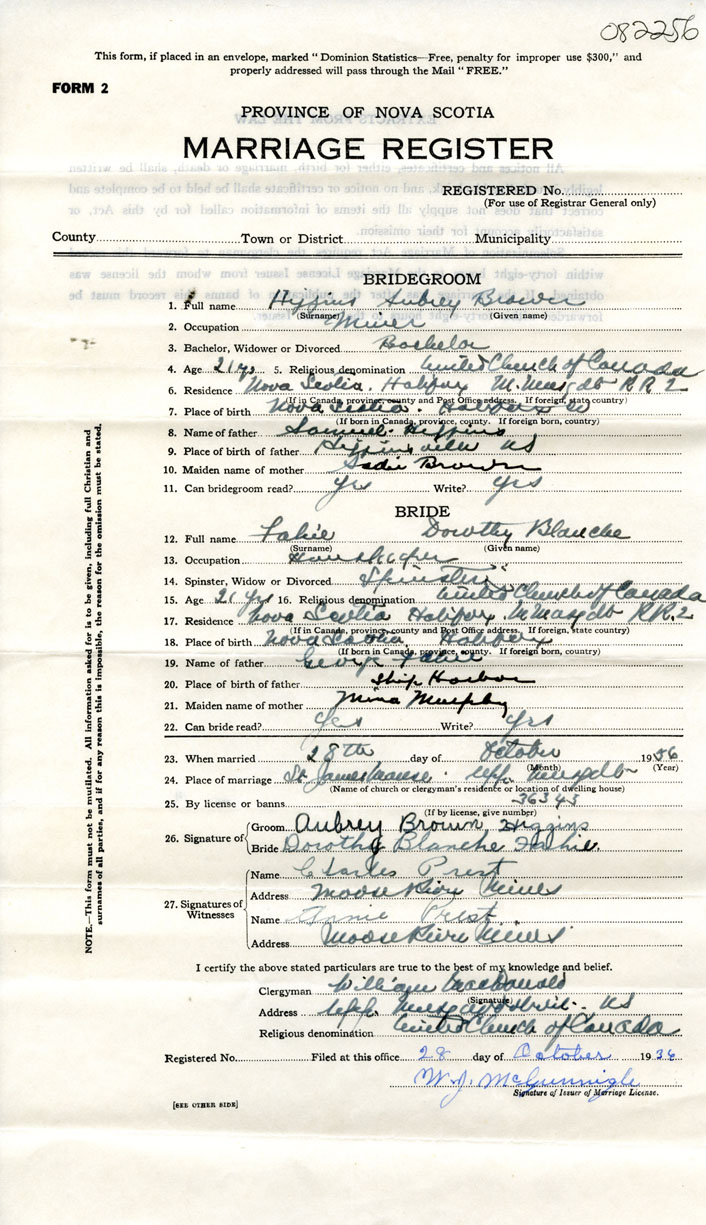 082256
This form, if placed in an envelope, marked "Dominion Statistics—Free, penalty for improper use $300," and
properly addressed will pass through the Mail "FREE."
FORM 2
PROVINCE OF NOVA SCOTIA
MARRIAGE REGISTER
REGISTERED No.
(For use of Registrar General only)
County Town or District Municipality
BRIDEGROOM
1. Full name Higgins Aubrey Brown
(Surname) (Given name)
2. Occupation Miner
3. Bachelor, Widower or Divorced Bachelor
4. Age 21 yrs 5. Religious denomination United Church of Canada
6. Residence Nova Scotia. Halifax M. Musqdbt R.R. 2
(If in Canada, province, county and Post Office address. If foreign, state country)
7. Place of birth Nova Scotia. Halifax
(If born in Canada, province, county. If foreign born, country)
8. Name of father Samuel Higgins
9. Place of birth of father Higginsville NS
10. Maiden name of mother Sadie Brown
11. Can bridegroom read? yes Write? yes
BRIDE
12. Full name Fahie Dorothy Blanche
(Surname) (Given name)
13. Occupation Housekeeper
14. Spinster, Widow or Divorced Spinster
15. Age 21 yrs 16. Religious denomination United Church of Canada
17. Residence Nova Scotia Halifax M. Musqdbt R.R. 2
(If in Canada, province, county and Post Office address. If foreign, state country)
18. Place of birth Nova Scotia, Halifax
(If born in Canada, province, county. If foreign born, country)
19. Name of father George Fahie
20. Place of birth of father Ship Harbor
21. Maiden name of mother Mina Murphy
22. Can bride read? yes Write? yes
23. When married 28th day of October 1936
(Month) (Year)
24. Place of marriage St James Manse. Upp. Musqdbt
(Name of church or clergyman's residence or location of dwelling house)
25. By license or banns 36343
(If by license, give number)
26. Signature of Groom Aubrey Brown Higgins
Bride Dorothy Blanche Fahie
27. Signatures of Witnesses
Name Charles Prest
Address Moose River Mines
Name Annie Prest
Address Moose River Mines
I certify the above stated particulars are true to the best of my knowledge and belief.
Clergyman William MacDonald
(Signature)
Address Upp. Musquodoboit. NS
Religious denomination United Church of Canada
Registered No. Filed at this office 28 day of October 1936
W. J. McGunnigle
Signature of Issuer of Marriage License.
[SEE OTHER SIDE]
NOTE.—This form must not be mutilated. All information asked for is to be given, including full Christian and
surnames of all parties, and if for any reason this is impossible, the reason for the omission must be stated.